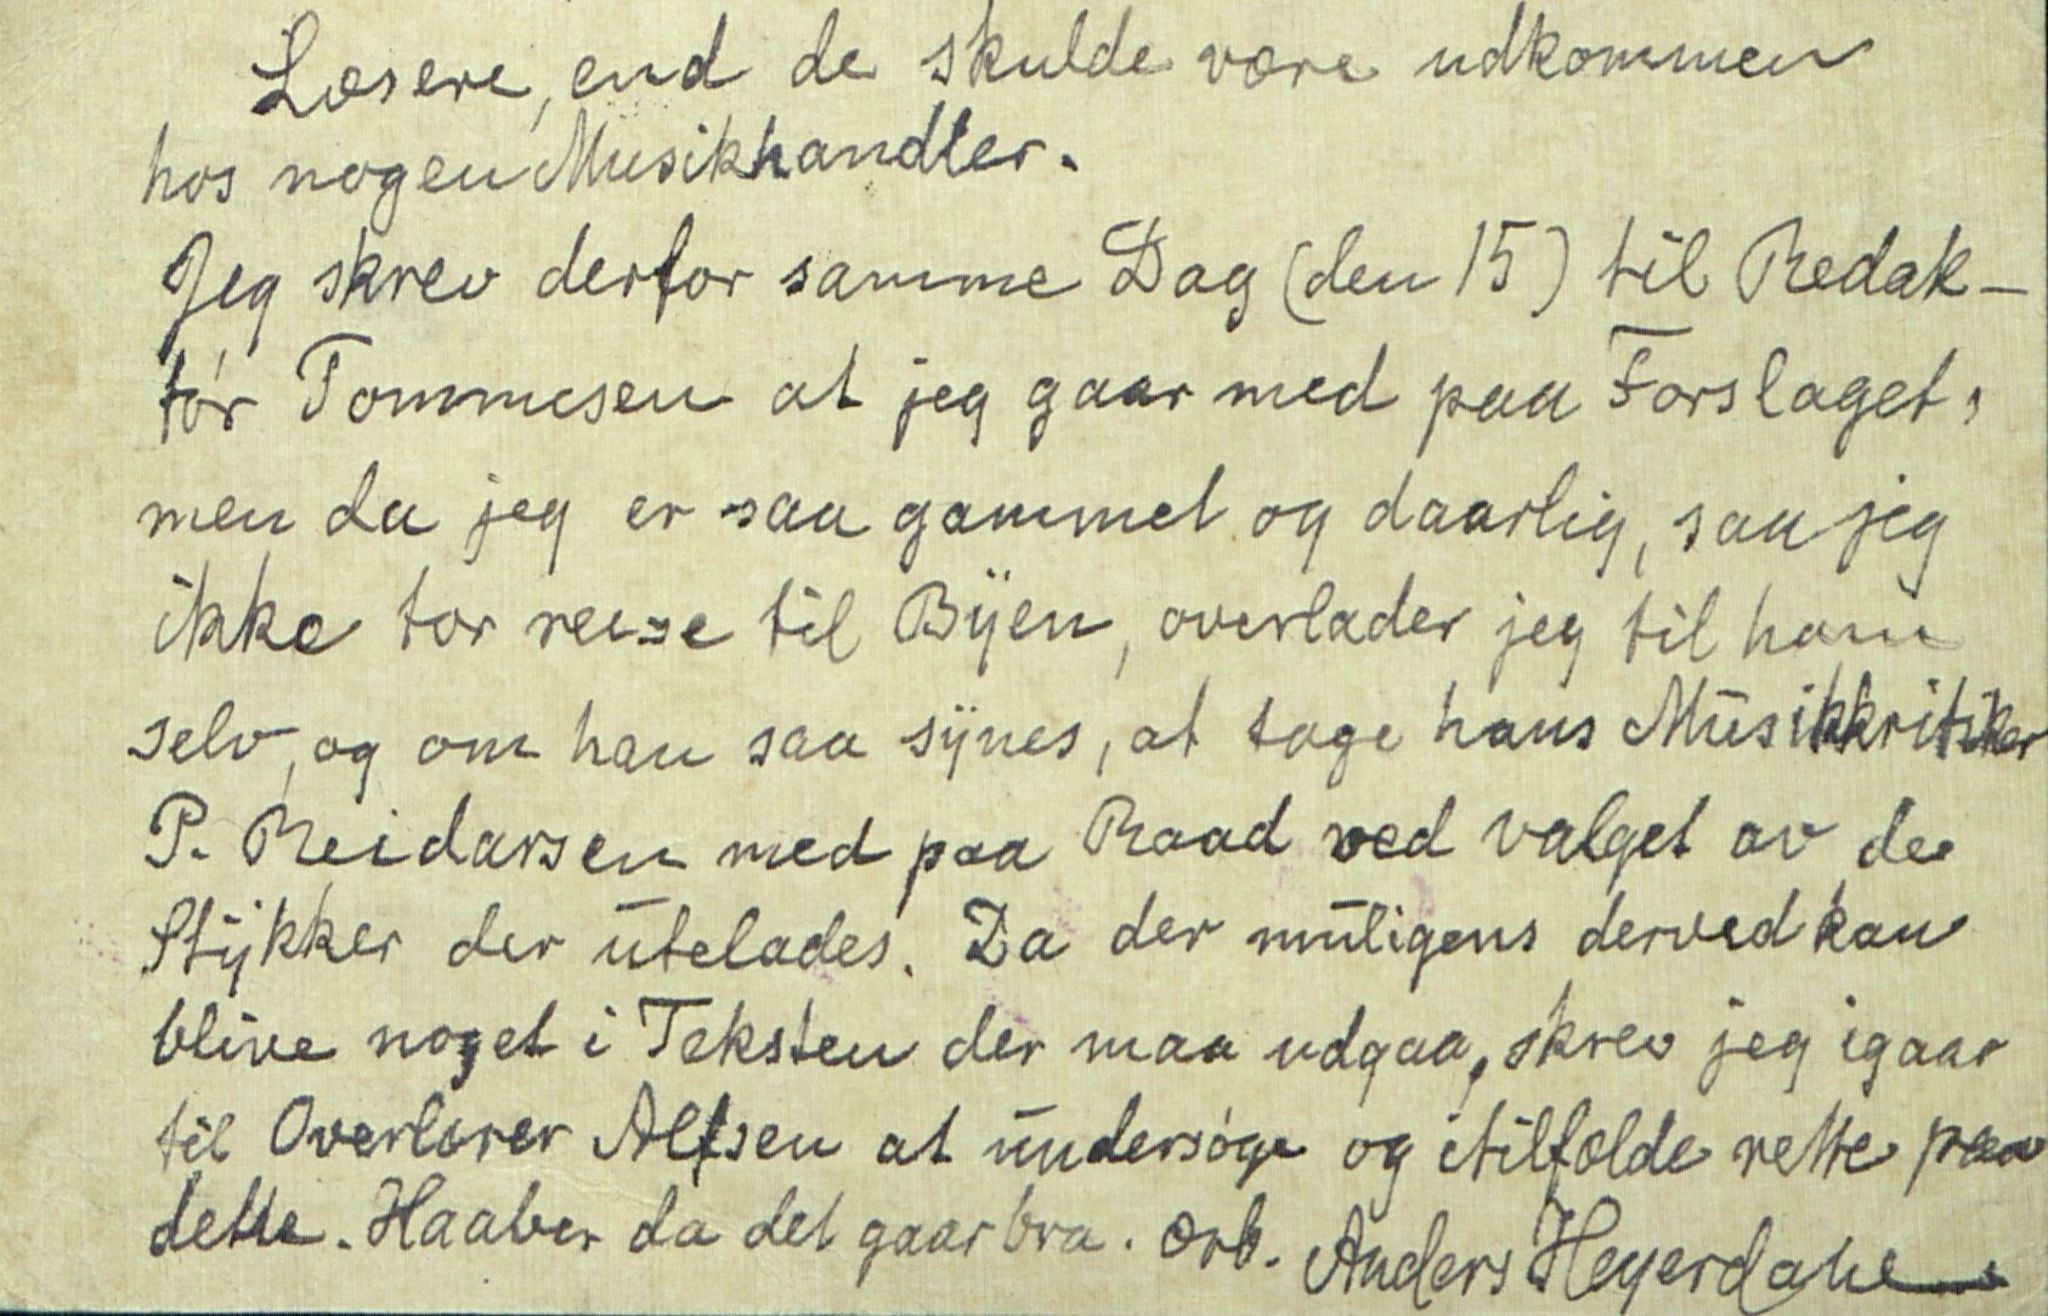 Læsere, end de skulde være udkommen
hos nogen Musikhandler.
Jeg skrev derfor samme Dag (den 15) til Redak-
tør Tommesen at jeg gaar med paa Forslaget,
men da jeg er saa gammel og daarlig, saa jeg
ikke tør reise til Byen, overlader jeg til ham
selv, og om han saa synes, at tage hans Musikkritiker
P. Reidarsen med paa Raad ved valget av de
Stykker der utelades. Da der muligens derved kan
blive noget i Teksten der maa udgaa, skrev jeg igaar
til Overlærer Alfsen at undersøge og itilfælde rette paa
dette. Haaber da det gaar bra. Ærb. Anders Heyerdahl